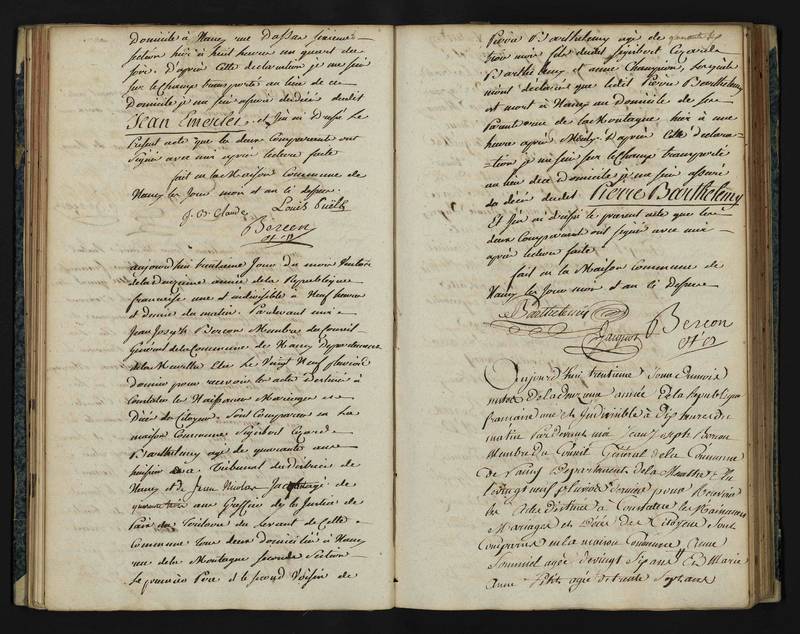 Domicilié à Nancy rue
section hier à huit heures un quart du
soir. D'après cette déclaration je me suis
sur le champ transporté au lieu de ce
Domicile je me suis assuré du décès dudit
Jean et j'en ai dressé le
présent acte que les deux comparants ont
signé avec moi après lecture faite
fait en la Maison Commune de
Nancy les jour mois et an ci dessus.
J. B. Claude Louis
Bercon
aujourd'hui jour du mois Ventose
de la deuxième année de la République
française une et indivisible à neuf heures
et demie du matin. Pardevant moi
Jean Joseph Bercon Membre du Conseil
Général de la Commune de Nancy Département
de la Meurthe Elu le Vingt Neuf pluviose
dernier pour recevoir les actes destinés à
Constater les Naissances Mariages et
Décès des Citoyens. Sont Comparus en la
maison Commune Sigisbert
Barthelemy agé de quarante ans
huissier au Tribunal du district de
Nancy et de Jean Nicolas agé de
ans Greffier de la Justice de
Paix de du levant de Cette
Commune tous deux domiciliés à Nancy
rue de la Montagne seconde Section
le premier Père et le second Voisin de
Pierre Barthelemy agé de
trois mois fils dudit Sigisbert
Barthelemy et anne Champion, lesquels
m'ont déclaré que ledit Pierre Barthelemy
est mort à Nancy au domicile de ses
Parents rue de la Montagne hier à une
heure après Midy. D'après cette déclara-
-tion je me suis sur le champ transporté
au lieu de ce domicile je me suis assuré
du décès dudit Pierre Barthelemy
Et j'en ai dressé le présent acte que les
deux Comparants ont signé avec moi
après lecture faite
fait en la Maison Commune de
Nancy les Jour mois et an ci dessus
Barthelemy
Jacquot Bercon
Aujourd'hui trentieme Jour du mois
de la deuxième année de la Republique
francaise une et Indivisible à Dix heures du
matin Pardevant moi Jean Joseph Bercon
Membre du Conseil Général de la Commune
de Nancy Departement de la Meurthe Elu
le vingt neuf pluviose dernier pour Recevoir
les Actes destinés a Constater les Naissances
Mariages et Décès des Citoyens Sont
Comparus en la maison Commune Anne
Sommel agée de vingt Six ans Et Marie
Anne agée de trente Sept ans